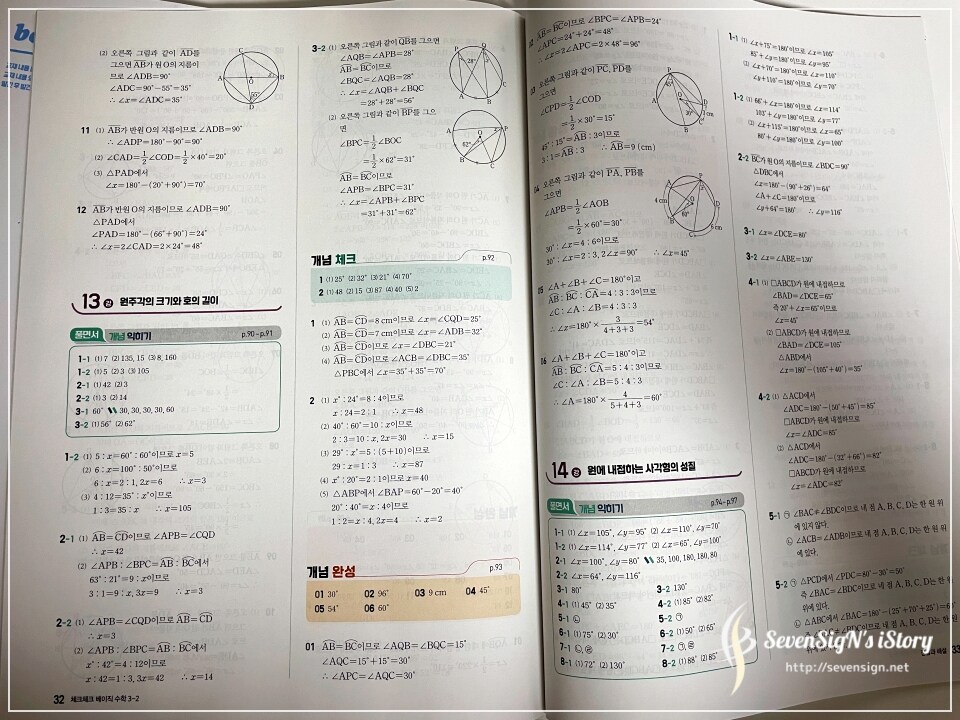 (2) 오른쪽 그림과 같이 AD를
그으면 AB가 원 O의 지름이
므로 ∠ADB=90°
∠ADC=90°-55°=35°
∴ ∠x=∠ADC=35°
11 (1) AB가 반원 O의 지름이므로 ∠ADB=90°
∴ ∠ADP=180°-90°=90°
(2) ∠CAD=1/2∠COD=1/2×40°=20°
(3) △PAD에서
∠x=180°-(20°+90°)=70°
12 AB가 반원 O의 지름이므로 ∠ADB=90°
△PAD에서
∠PAD=180°-(66°+90°)=24°
∴ ∠x=2∠CAD=2×24°=48°
13 강 원주각의 크기와 호의 길이
풀면서 개념 익히기 p.90~p.91
1-1 (1) 7 (2) 135, 15 (3) 8, 160
1-2 (1) 5 (2) 3 (3) 105
2-1 (1) 42 (2) 3
2-2 (1) 3 (2) 14
3-1 60° 30, 30, 30, 30, 60
3-2 (1) 56° (2) 62°
1-2 (1) 5 : x=60° : 60°이므로 x=5
(2) 6 : x=100° : 50°이므로
6 : x=2 : 1, 2x=6 ∴ x=3
(3) 4 : 12=35° : x°이므로
1 : 3=35 : x ∴ x=105
2-1 (1) AB=CD이므로 ∠APB=∠CQD
∴ x=42
(2) ∠APB : ∠BPC=AB : BC에서
63° : 21°=9 : x이므로
3 : 1=9 : x, 3x=9 ∴ x=3
2-2 (1) ∠APB=∠CQD이므로 AB=CD
∴ x=3
(2) ∠APB : ∠BPC=AB : BC에서
x° : 42°=4 : 12이므로
x : 42=1 : 3, 3x=42 ∴ x=14
32 체크체크 베이직 수학 3-2
3-2 (1) 오른쪽 그림과 같이 QB를 그으면
∠AQB=∠APB=28°
AB=BC이므로
∠BQC=∠AQB=28°
∴ ∠x=∠AQB+∠BQC
=28°+28°=56°
(2) 오른쪽 그림과 같이 BP를 그으
면
∠BPC=1/2∠BOC
=1/2×62°=31°
AB=BC이므로
∠APB=∠BPC=31°
∴ ∠x=∠APB+∠BPC
=31°+31°=62°
개념 체크 p.92
1 (1) 25° (2) 32° (3) 21° (4) 70°
2 (1) 48 (2) 15 (3) 87 (4) 40 (5) 2
1 (1) AB=CD=8 cm이므로 ∠x=∠CQD=25°
(2) AB=CD=7 cm이므로 ∠x=∠ADB=32°
(3) AB=CD이므로 ∠x=∠DBC=21°
(4) AB=CD이므로 ∠ACB=∠DBC=35°
△PBC에서 ∠x=35°+35°=70°
2 (1) x° : 24°=8 : 4이므로
x : 24=2 : 1 ∴ x=48
(2) 40° : 60°=10 : x이므로
2 : 3=10 : x, 2x=30 ∴ x=15
(3) 29° : x°=5 : (5+10)이므로
29 : x=1 : 3 ∴ x=87
(4) x° : 20°=2 : 1이므로 x=40
(5) △ABP에서 ∠BAP=60°-20°=40°
20° : 40°=x : 4이므로
1 : 2=x : 4, 2x=4 ∴ x=2
개념 완성 p.93
01 30° 02 96° 03 9 cm 04 45°
05 54° 06 60°
01 AB=BC이므로 ∠AQB=∠BQC=15°
∠AQC=15°+15°=30°
∴ ∠APC=∠AQC=30°
AB=BC이므로 ∠BPC=∠APB=24°
∠APC=24°+24°=48°
∴ ∠x=2∠APC=2×48°=96°
오른쪽 그림과 같이 PC, PD를
그으면
∠CPD=1/2∠COD
=1/2×30°=15°
45° : 15°=AB : 3이므로
3 : 1=AB : 3 ∴ AB=9 (cm)
오른쪽 그림과 같이 PA, PB를
그으면
∠APB=1/2∠AOB
=1/2×60°=30°
30° : ∠x=4 : 6이므로
30° : ∠x=2 : 3, 2∠x=90° ∴ ∠x=45°
∠A+∠B+∠C=180°이고
AB : BC : CA=4 : 3 : 3이므로
∠C : ∠A : ∠B=4 : 3 : 3
∴ ∠x=180°×3/(4+3+3)=54°
16 ∠A+∠B+∠C=180°이고
AB : BC : CA=5 : 4 : 3이므로
∠C : ∠A : ∠B=5 : 4 : 3
∴ ∠A=180°×4/(5+4+3)=60°
14 강 원에 내접하는 사각형의 성질
풀면서 개념 익히기 p.94~p.97
1-1 (1) ∠x=105°, ∠y=95° (2) ∠x=110°, ∠y=70°
1-2 (1) ∠x=114°, ∠y=77° (2) ∠x=65°, ∠y=100°
2-1 ∠x=100°, ∠y=80° 35, 100, 180, 180, 80
2-2 ∠x=64°, ∠y=116°
3-1 80° 3-2 130°
4-1 (1) 45° (2) 35° 4-2 (1) 85° (2) 82°
5-1 ㉡ 5-2 ㉠
6-1 (1) 75° (2) 30° 6-2 (1) 50° (2) 65°
7-1 ㉡, ㉣ 7-2 ㉠, ㉣
8-1 (1) 72° (2) 130° 8-2 (1) 88° (2) 85°
1-1 (1) ∠x+75°=180°이므로 ∠x=105°
85°+∠y=180°이므로 ∠y=95°
(2) ∠x+70°=180°이므로 ∠x=110°
∠y+110°=180°이므로 ∠y=70°
1-2 (1) 66°+∠x=180°이므로 ∠x=114°
103°+∠y=180°이므로 ∠y=77°
(2) ∠x+115°=180°이므로 ∠x=65°
80°+∠y=180°이므로 ∠y=100°
2-2 BC가 원 O의 지름이므로 ∠BDC=90°
△DBC에서
∠x=180°-(90°+26°)=64°
∠A+∠C=180°이므로
∠y+64°=180° ∴ ∠y=116°
3-1 ∠x=∠DCE=80°
3-2 ∠x=∠ABE=130°
4-1 (1) □ABCD가 원에 내접하므로
∠BAD=∠DCE=65°
즉 20°+∠x=65°이므로
∠x=45°
(2) □ABCD가 원에 내접하므로
∠BAD=∠DCE=105°
△ABD에서
∠x=180°-(105°+40°)=35°
4-2 (1) △ACD에서
∠ADC=180°-(50°+45°)=85°
□ABCD가 원에 내접하므로
∠x=∠ADC=85°
(2) △ACD에서
∠ADC=180°-(32°+66°)=82°
□ABCD가 원에 내접하므로
∠x=∠ADC=82°
5-1 ㉠ ∠BAC≠∠BDC이므로 네 점 A, B, C, D는 한 원 위
에 있지 않다.
㉡ ∠ACB=∠ADB이므로 네 점 A, B, C, D는 한 원 위
에 있다.
5-2 ㉠ △PCD에서 ∠PDC=80°-30°=50°
즉 ∠BAC=∠BDC이므로 네 점 A, B, C, D는 한 원
위에 있다.
㉡ △ABC에서 ∠BAC=180°-(25°+70°+25°)=60°
SevenSigN's iStory
http://sevensign.net